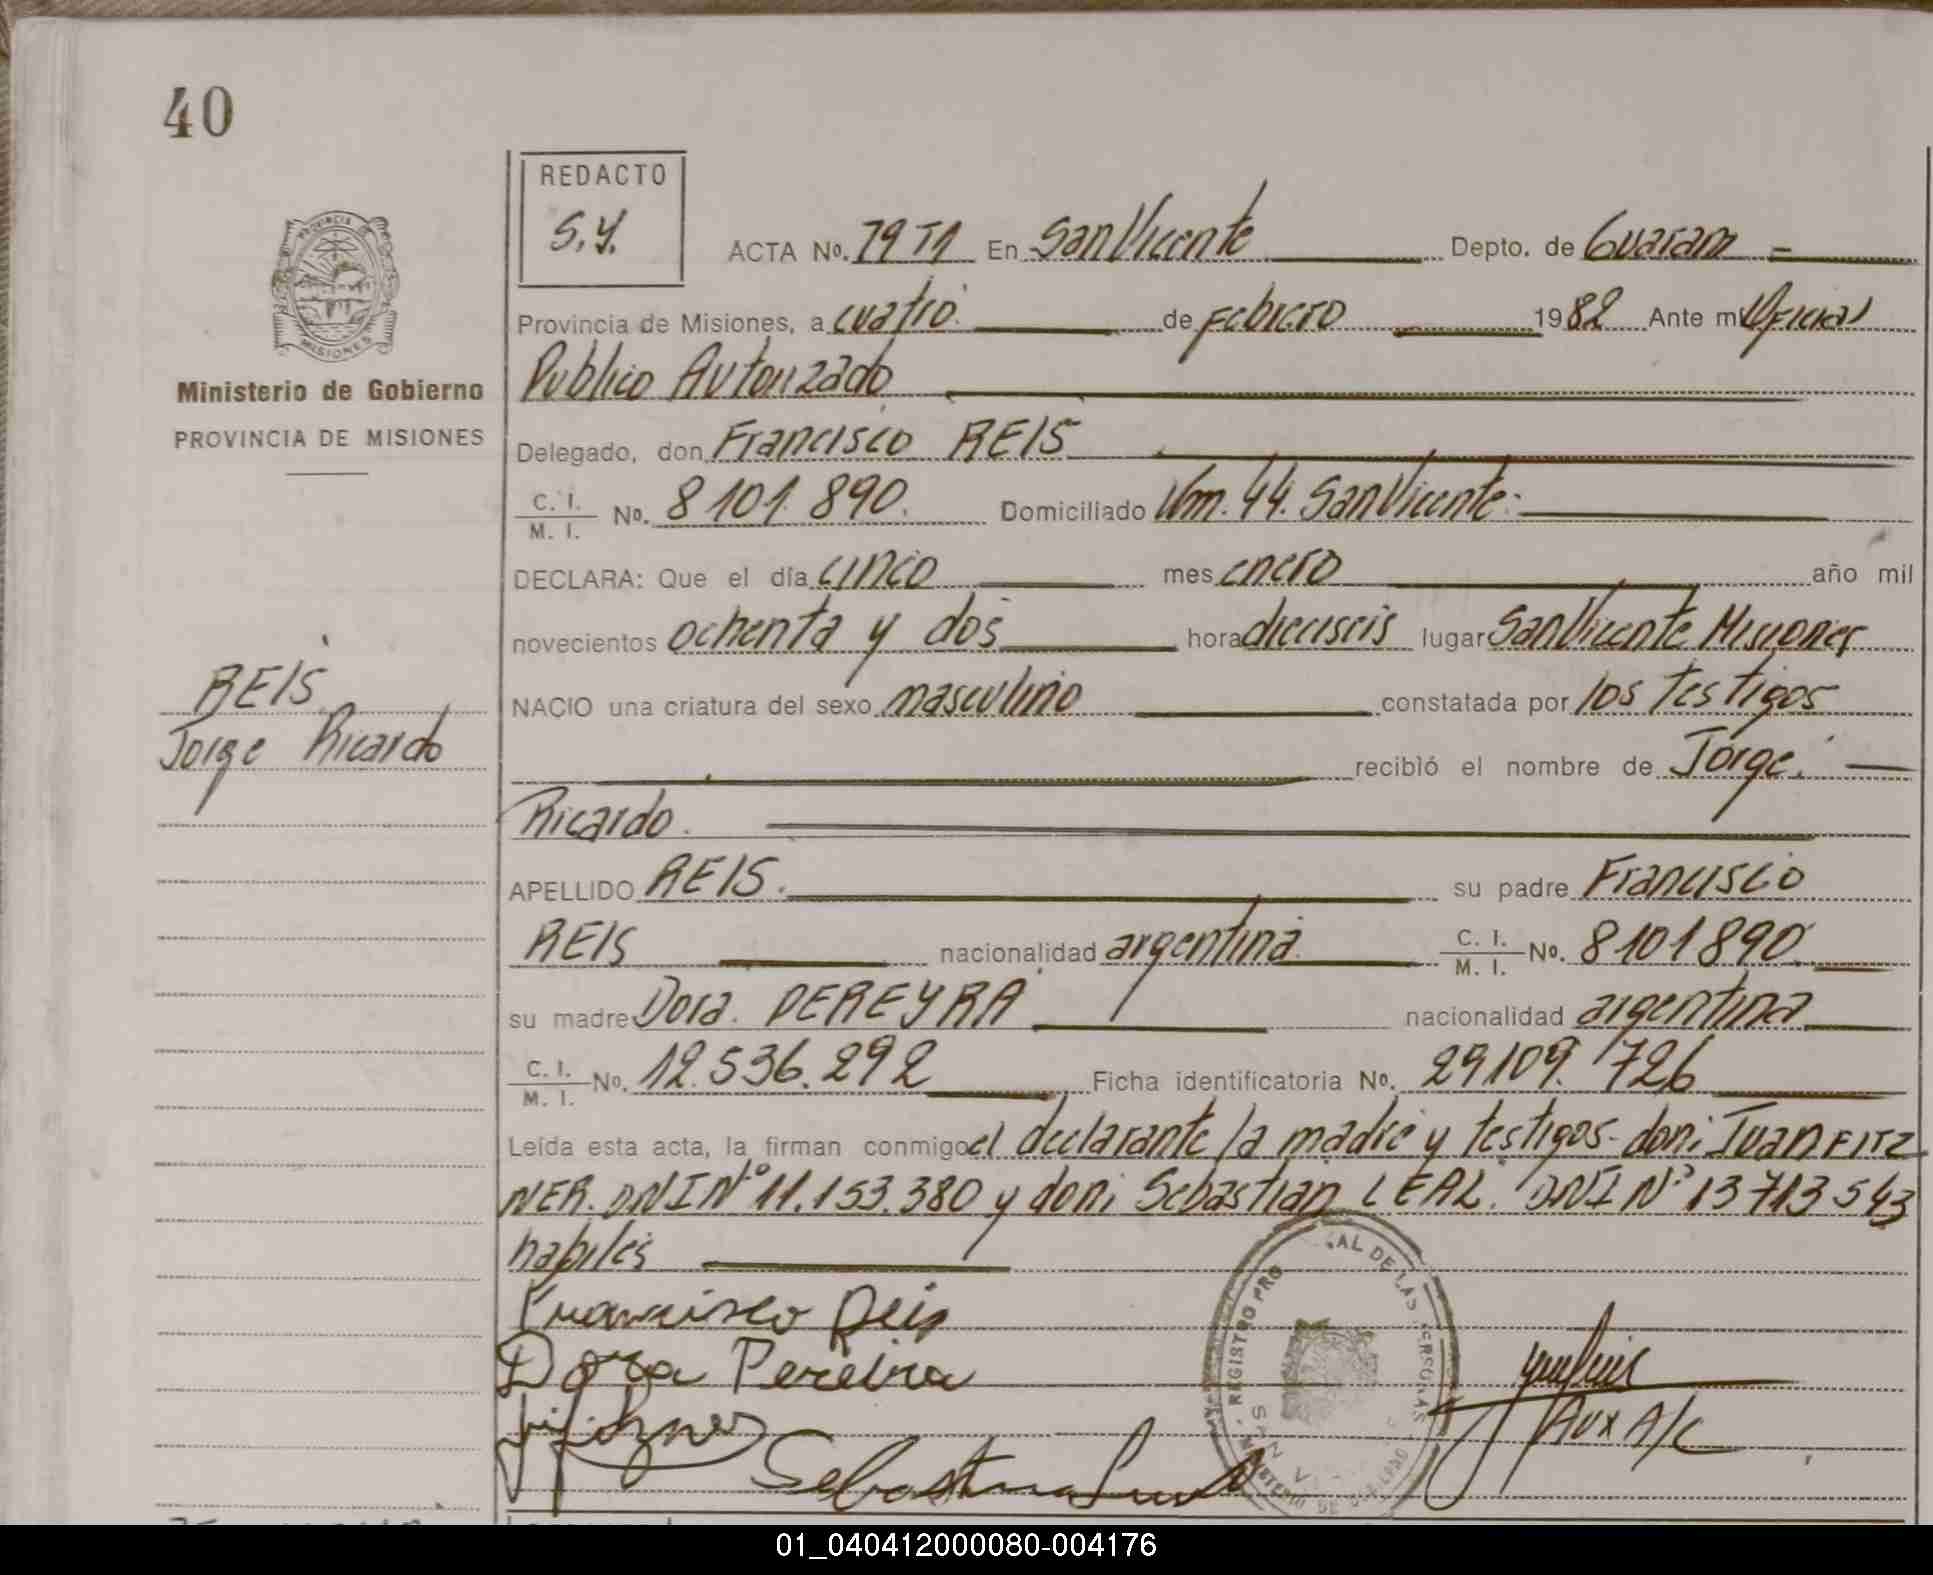 40
REDACTO
S.Y.
ACTA No. 79 T1 En San Vicente Depto. de Guarani
Provincia de Misiones, a cuatro de Febrero 1982 Ante mi Oficial
Publico Autorizado
PROVINCIA DE
MISIONES
Ministerio de Gobierno
PROVINCIA DE MISIONES
Delegado, don Francisco REIS
C. I.
M. I. No. 8 101 890. Domiciliado Km. 44. San Vicente.
DECLARA: Que el día cinco mes enero año mil
novecientos ochenta y dos hora dieciseis lugar San Vicente Misiones
REIS
Jorge Ricardo
NACIO una criatura del sexo masculino constatada por los testigos
recibió el nombre de Jorge.
Ricardo.
APELLIDO REIS. su padre Francisco
REIS nacionalidad argentina C. I.
M. I. No. 8101890.
su madre Dora. PEREYRA nacionalidad argentina
C. I.
M. I. No. 12.536.292 Ficha identificatoria No. 29109.726
Leída esta acta, la firman conmigo el declarante la madre y testigos- don: Juan FITZ
NER. DNI Nº 11.153.380 y don: Sebastian LEAL. DNI Nº 13 713 543
habiles
Francisco Reis
Dora Pereira
Sebastian
Aux A/C
REGISTRO PRO AL DE LAS PERSONAS
01_040412000080-004176